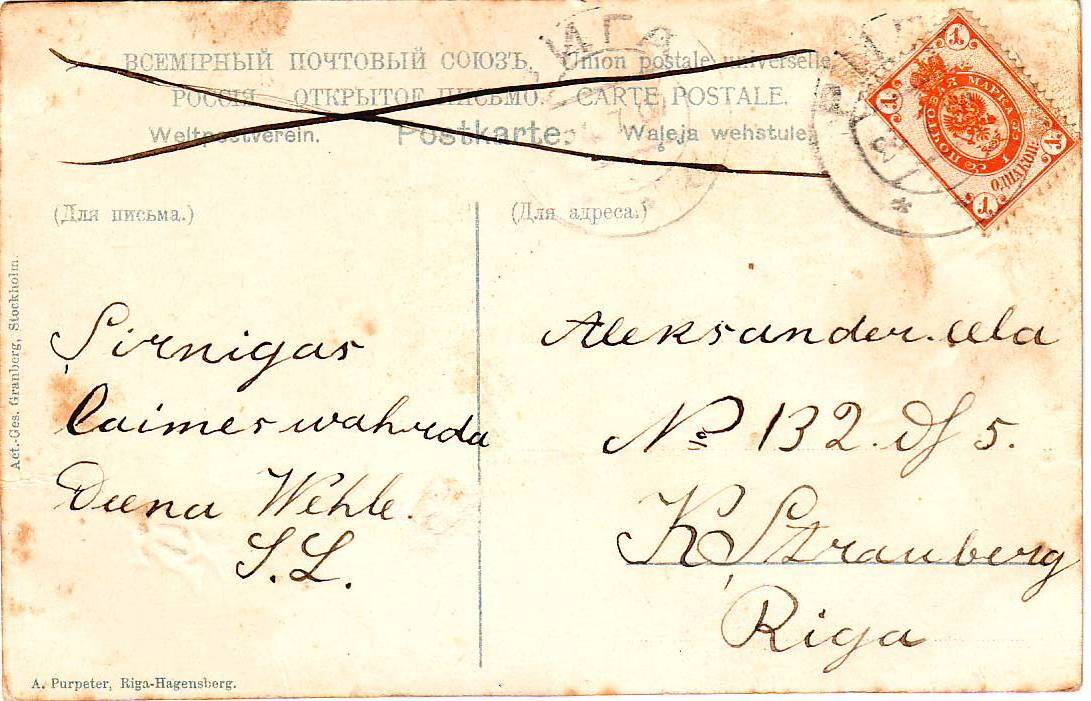 ВСЕМІРНЫЙ ПОЧТОВЫЙ СОЮЗЪ. Union postale universelle
РОССІЯ ОТКРЫТОЕ ПИСЬМО. CARTE POSTALE.
Weltpostverein. Postkarte. Waleja wehstule.
(Для письма.)
(Для адреса.)
РИГА
1 1 1 1
ПОЧТОВАЯ МАРКА
ОДНА КОП.
Act.-Ges. Granberg, Stockholm.
Sirnigas
laimes wahrda
Deena Wehle.
S.L.
Aleksander. eela
№ 132. dſ 5.
K Strauberg
Riga
A. Purpeter, Riga-Hagensberg.